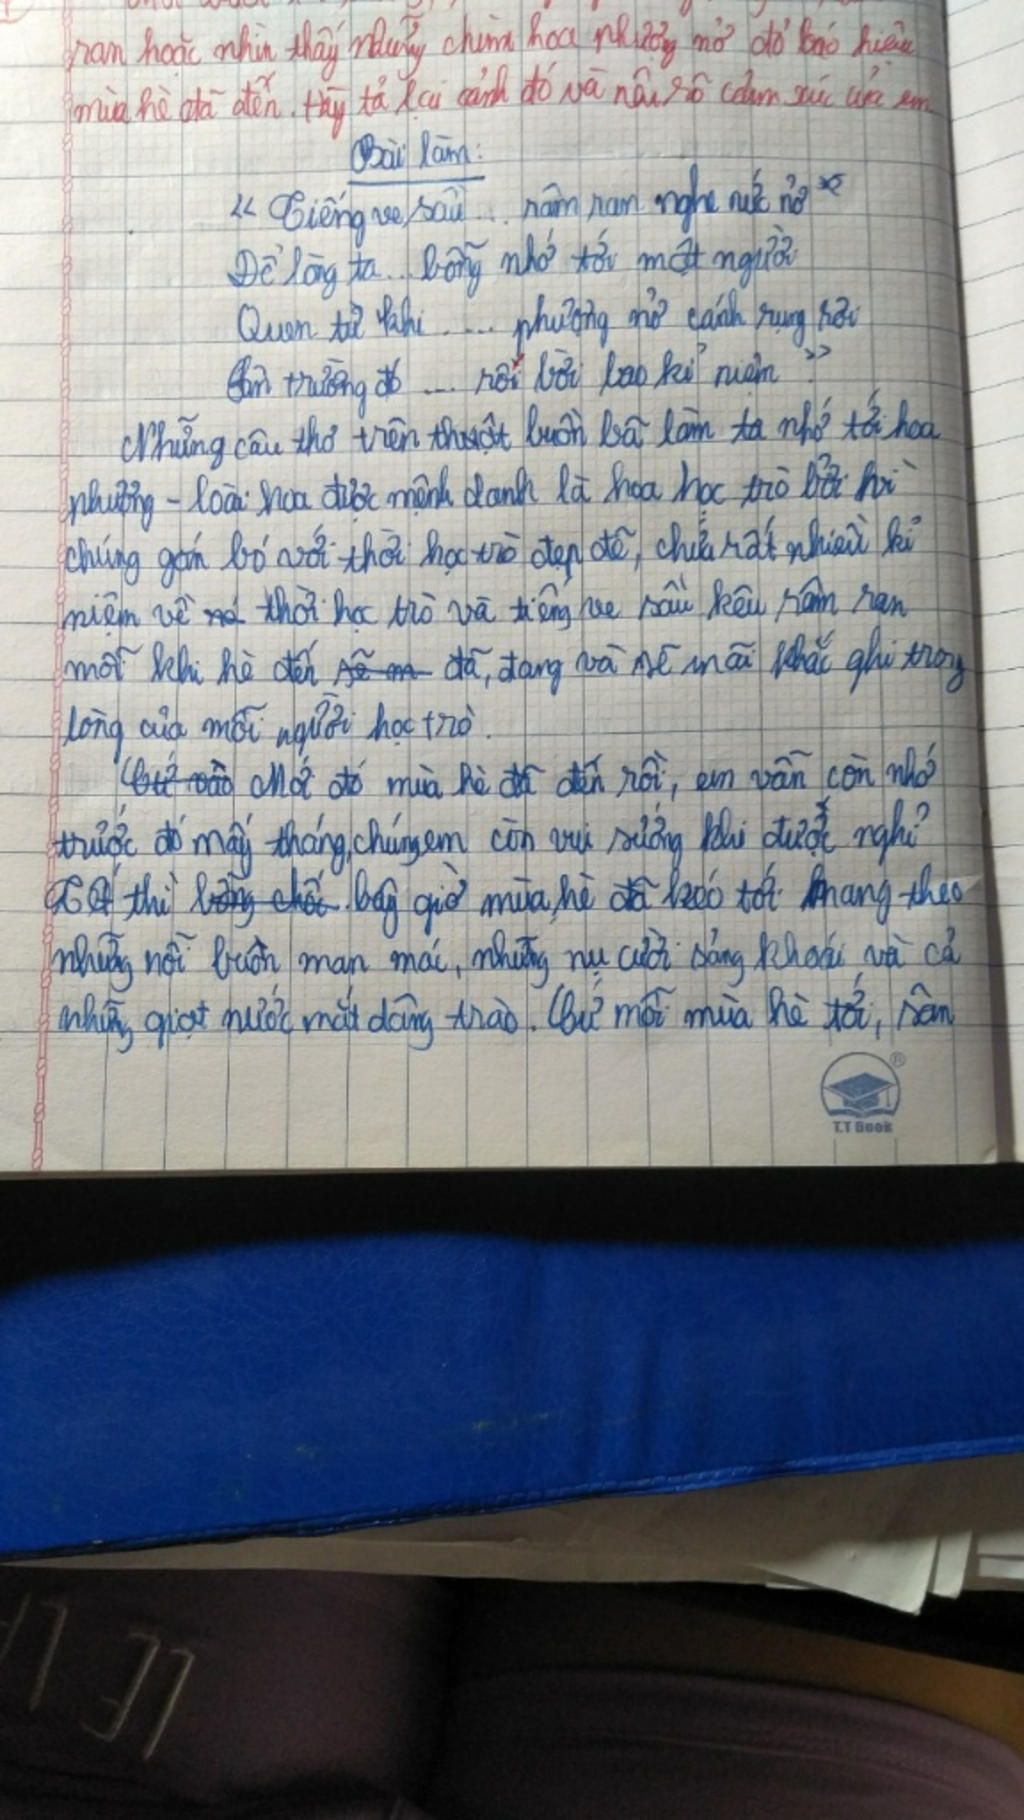 ran hoặc nhìn thấy những chùm hoa phượng nở đỏ báo hiệu
mùa hè đã đến. Hãy tả lại cảnh đó và nêu rõ cảm xúc của em
Bài làm:
"Tiếng ve sầu ... râm ran nghe nức nở
Để lòng ta ... bỗng nhớ tới một người
Quen từ khi .... phượng nở cánh rụng rơi
Sân trường đó .... rối bời bao kỉ niệm"
Những câu thơ trên thuật buồn bã làm ta nhớ tới hoa
phượng - loài hoa được mệnh danh là hoa học trò bởi
chúng gắn bó với thời học trò đẹp đẽ, chứa rất nhiều kỉ
niệm về thời học trò và tiếng ve sầu kêu râm ran
mỗi khi hè đến đã, đang và sẽ mãi khắc ghi trong
lòng của mỗi người học trò.
Mới đó mùa hè đã đến rồi, em vẫn còn nhớ
trước đó mấy tháng, chúng em còn vui sướng khi được nghỉ
thì bây giờ mùa hè đã kéo tới mang theo
những nỗi buồn man mác, những nụ cười sảng khoái và cả
những giọt nước mắt dâng trào. Cứ mỗi mùa hè tới, sân
T.T Book